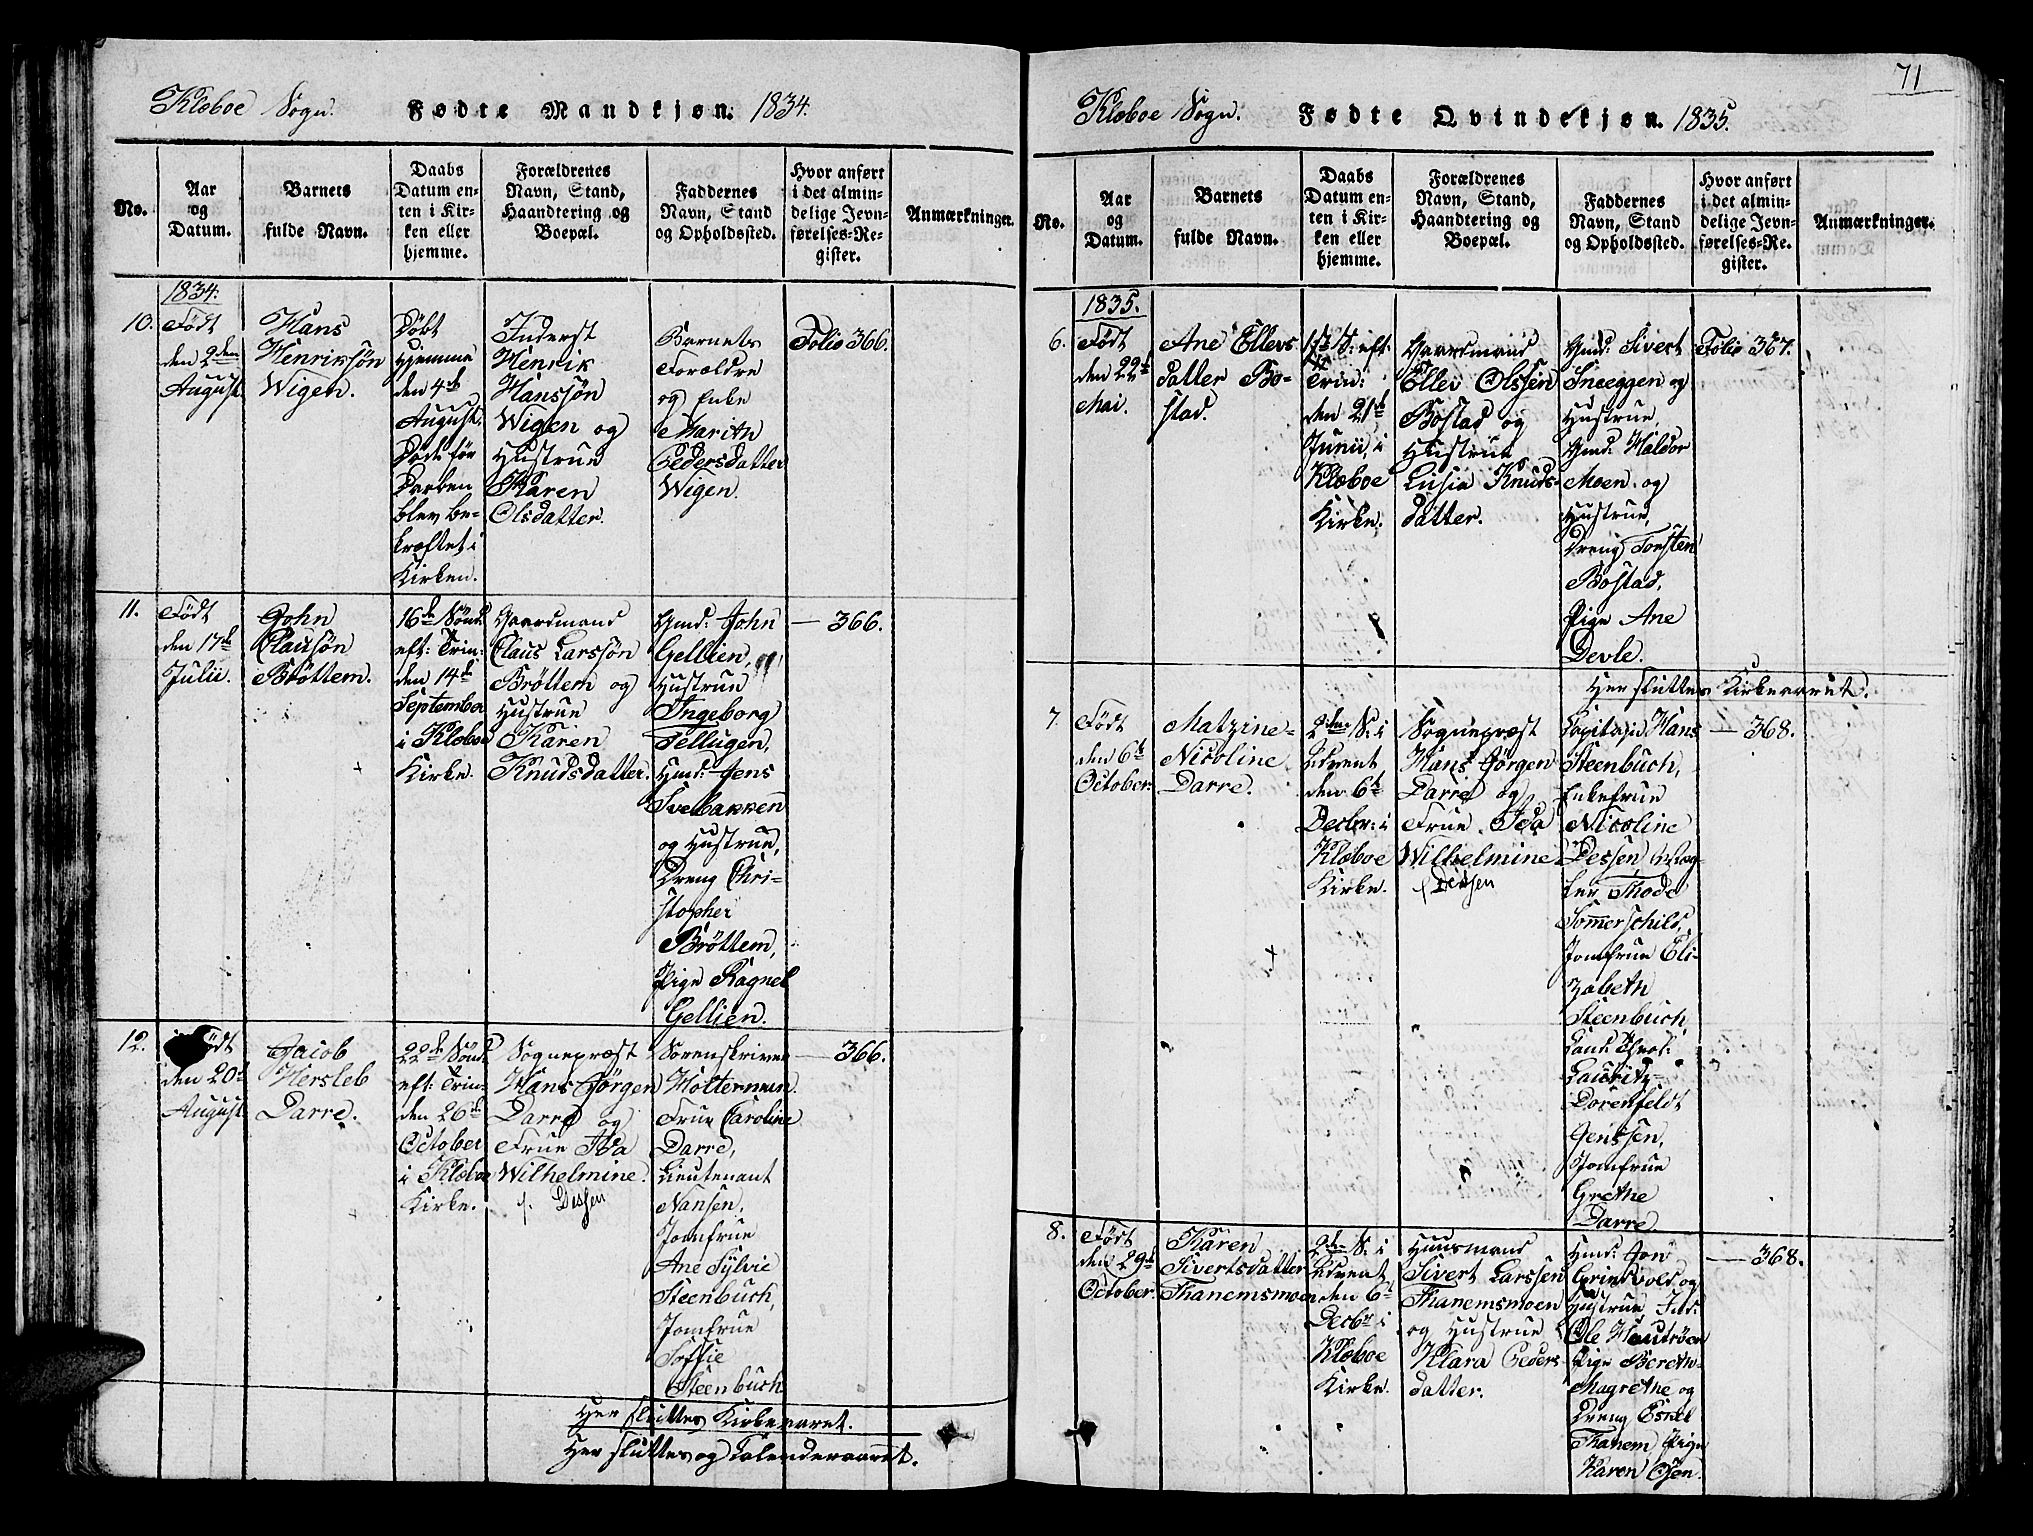 Klæboe Sogn. Fødte Mandkjøn. 1834.
No.
Aar
og
Datum.
Barnets
fulde Navn.
Daabs
Datum en-
ten i Kir-
ken eller
hjemme.
Forældrenes
Navn, Stand,
Haandtering og
Boepæl.
Faddernes
Navn, Stand
og Opholdssted.
Hvor anført
i det almin-
delige Jevn-
førelses-Re-
gister.
Anmærkninger.
1834.
10.
Født
den 2den
August.
Hans
Henriksøn
Wigen.
Døbt
hjemme
den 4de
August.
Daab før
Daaben
blev be-
kræftet i
Kirken.
Inderst
Henrik
Hanssøn
Wigen og
Hustrue
Karen
Olsdatter.
Barnets
Forældre
og Enke
Marith
Pedersdatter
Wigen.
Folio 366.
11.
Født
den 17de
Julii.
John
Clausøn
Brøttem.
16de Sønd.
eft: Trin:
den 14de
September
i Klæboe
Kirke.
Gaardmand
Claus Larssøn
Brøttem og
Hustrue
Karen
Knudsdatter.
Gmd: John
Gellien,
Hustrue
Ingeborg
Tellugen,
Hmd: Jens
Svebakken
og Hustrue,
Dreng Chri-
stopher
Brøttem,
Pige Ragnel
Gellien.
— 366.
12.
Født
den 20de
August.
Jacob
Hersleb
Darre.
22de Sønd.
eft: Trin:
den 26de
October
i Klæboe
Kirke.
Sognepræst
Hans Jørgen
Darre og
Frue Ida
Wilhelmine.
f. Dessen
Sorenskriver
Holterman.
Frue Caroline
Darre,
Lieutenant
Nansen,
Jomfrue
Ane Sylvie
Steenbuch,
Jomfrue
Soffie
Steenbuch
— 366.
Her sluttes Kirkeaaret.
Her sluttes og Calenderaaret.
71
Klæboe Sogn. Fødte Qvindekjøn. 1835.
No.
Aar
og
Datum.
Barnets
fulde Navn.
Daabs
Datum en-
ten i Kir-
ken eller
hjemme.
Forældrenes
Navn, Stand,
Haandtering og
Boepæl.
Faddernes
Navn, Stand
og Opholdssted.
Hvor anført
i det almin-
delige Jevn-
førelses-Re-
gister.
Anmærkninger.
1835.
6.
Født
den 22de
Mai.
Ane Ellevs
datter Bo-
stad.
S: eft:
Trin:
den 21de
Junii, i
Klæboe
Kirke.
Gaardmand
Ellev Olssen
Bostad og
Hustrue
Lusia Knuds-
datter.
Gmd: Sivert
Sneeggen og
Hustrue,
Gmd: Haldor
Moen og
Hustrue,
Dreng Torsten
Bostad,
Pige Ane
Devle.
Folio 367.
Her sluttes Kirkeaaret.
7.
Født
den 6te
October.
Matzine
Nicoline
Darre.
2den S: i
Advent
den 6te
Decbr: i
Klæboe
Kirke.
Sognepræst
Hans Jørgen
Darre og
Frue Ida
Wilhelmine
f. Dessen
Capitain Hans
Steenbuch,
Enkefrue
Nicoline
Dessen, Mæg-
ler Thode
Sommerschild,
Jomfrue Eli-
zabeth
Steenbuch,
Cand: Theol:
Lauritz
Dorenfeldt
Jenssen,
Jomfrue
Grethe
Darre
— 368.
8.
Født
den 29de
October.
Karen
Sivertsdatter
Thanemsmoen
2den S: i
Advent
den 6te
Decbr: i
Klæboe
Kirke.
Huusmand
Sivert Larssen
Thanemsmoen
og Hustrue
Klara Peders-
datter.
Hmd: Jon
Grindvold og
Hustrue, Inds:
Ole Haustrøen
Pige Bereth-
Magrethe og
Dreng Eskel
Thanem, Pige
Karen Osen.
— 368.